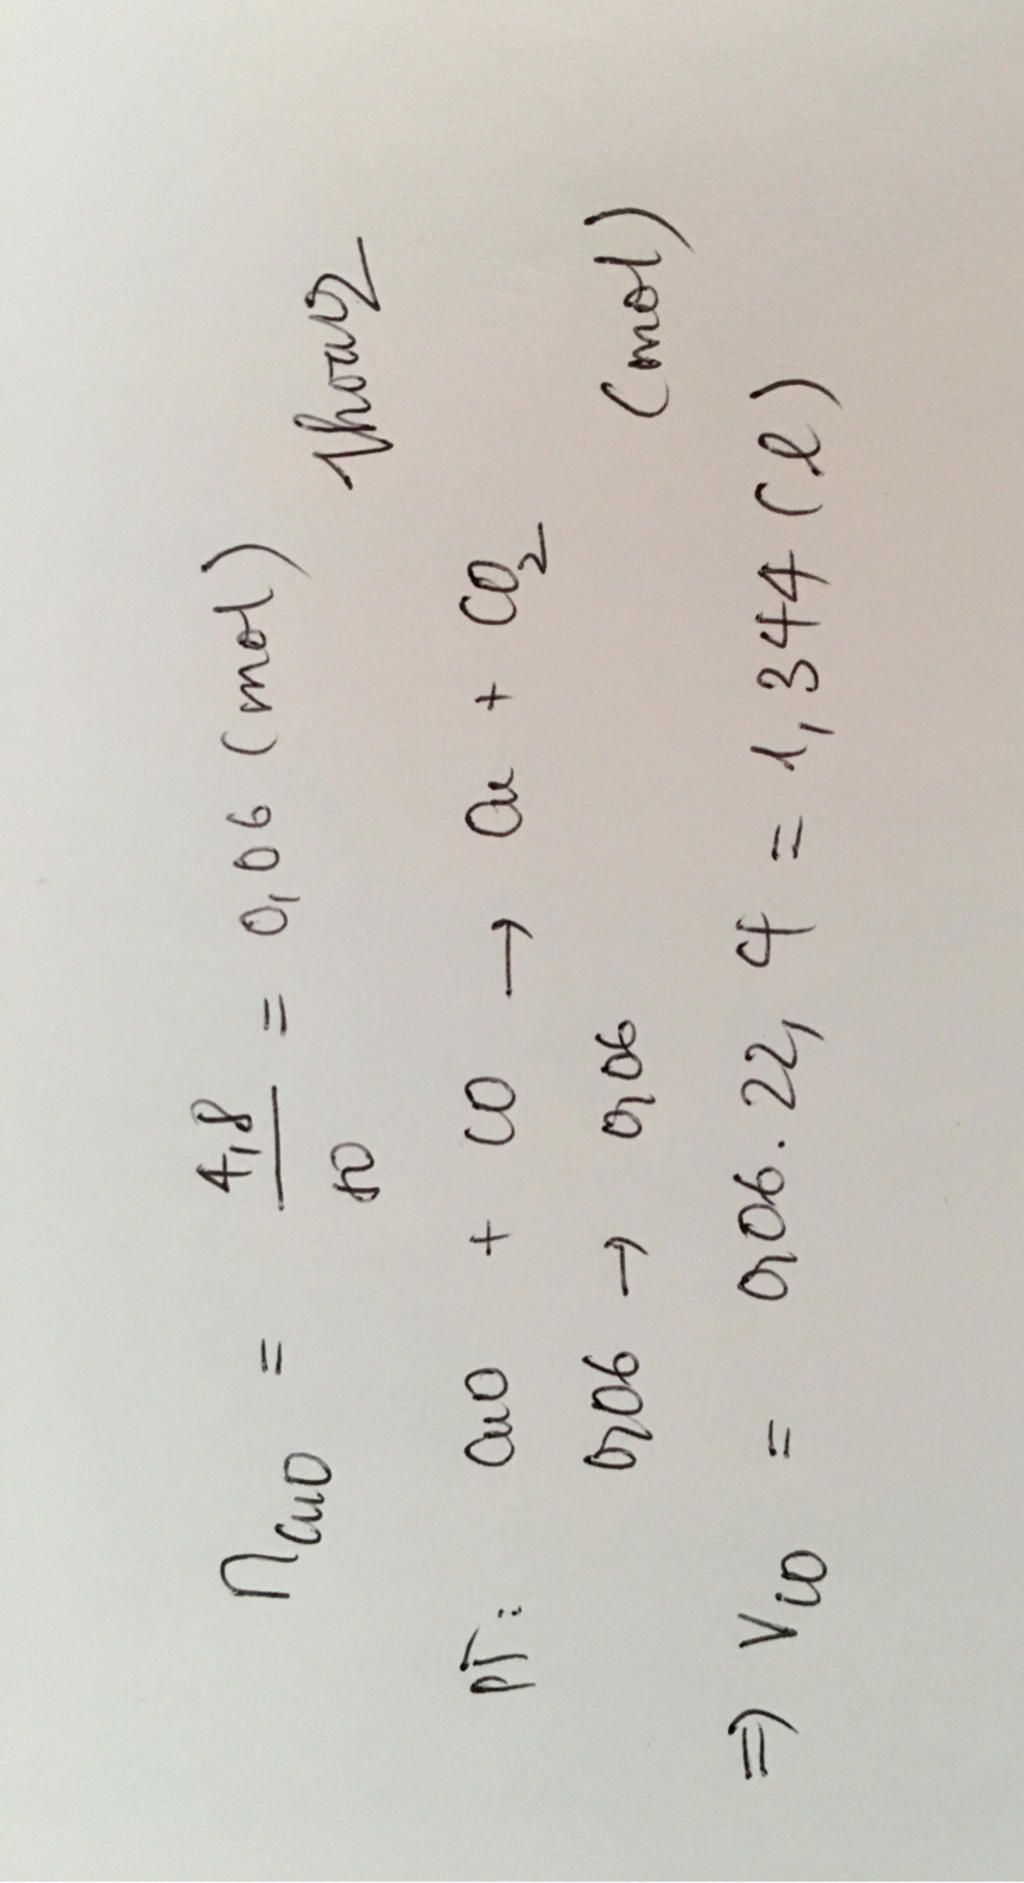 n CuO = 4,8 / 80 = 0,06 (mol)
PT: CuO + CO → Cu + CO2
0,06 → 0,06 (mol)
⇒ VCO = 0,06 . 22,4 = 1,344 (l)